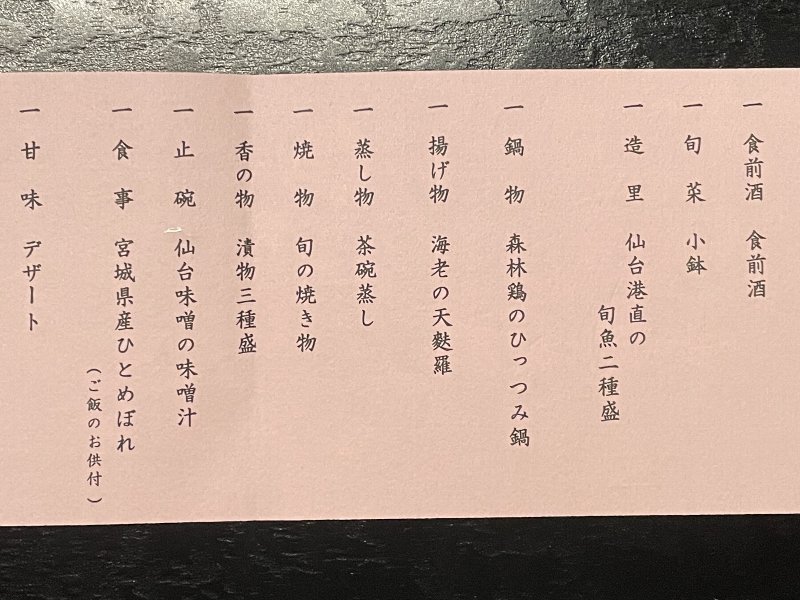 一 食前酒 食前酒
一 旬菜 小鉢
一 造里 仙台港直の
旬魚二種盛
一 鍋物 森林鶏のひっつみ鍋
一 揚げ物 海老の天麩羅
一 蒸し物 茶碗蒸し
一 焼物 旬の焼き物
一 香の物 漬物三種盛
一 止碗 仙台味噌の味噌汁
一 食事 宮城県産ひとめぼれ
(ご飯のお供付)
一 甘味 デザート